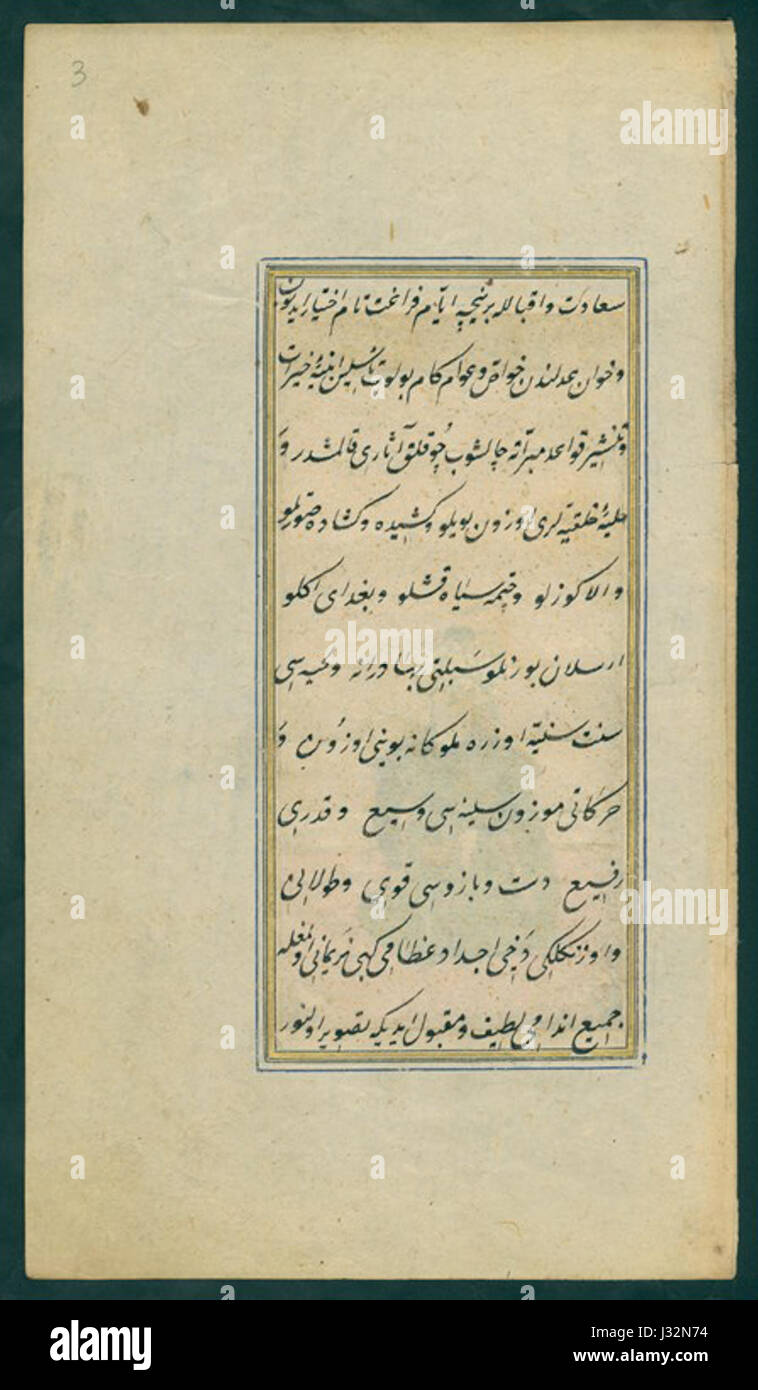 3
سعادت و اقبالله برنیچه ایام فراغت تام اختیار ایدیوب
و خوان عدلندن خواص و عوام کام بولوب تأسیس ابنیهٔ خیرات
و قواعد مبراته چالشوب چوقلق آثاری قالمشدر و
حلیهٔ خلقیه لری اوزون بویلو و کشیده و کشاده
والا کوزلو و چتمه سیاه قشلو و بغدای اکلو
ارسلان بورنلو سبلتی بهادرانه و لحیه سی
سنت سنیه اوزره ملوکانه بوینی اوزون و
حرکاتی موزون سینه سی وسیع و قدری
رفیع دست و بازوسی قوی و طولانی
و اوزنکلکی دخی اجداد عظامی کبی نریمانی اولمغله
جمیع اندامی لطیف و مقبول ایدیکه تصویر اولنور
alamy
alamy
a
alamy
Image ID: J32N74
www.alamy.com